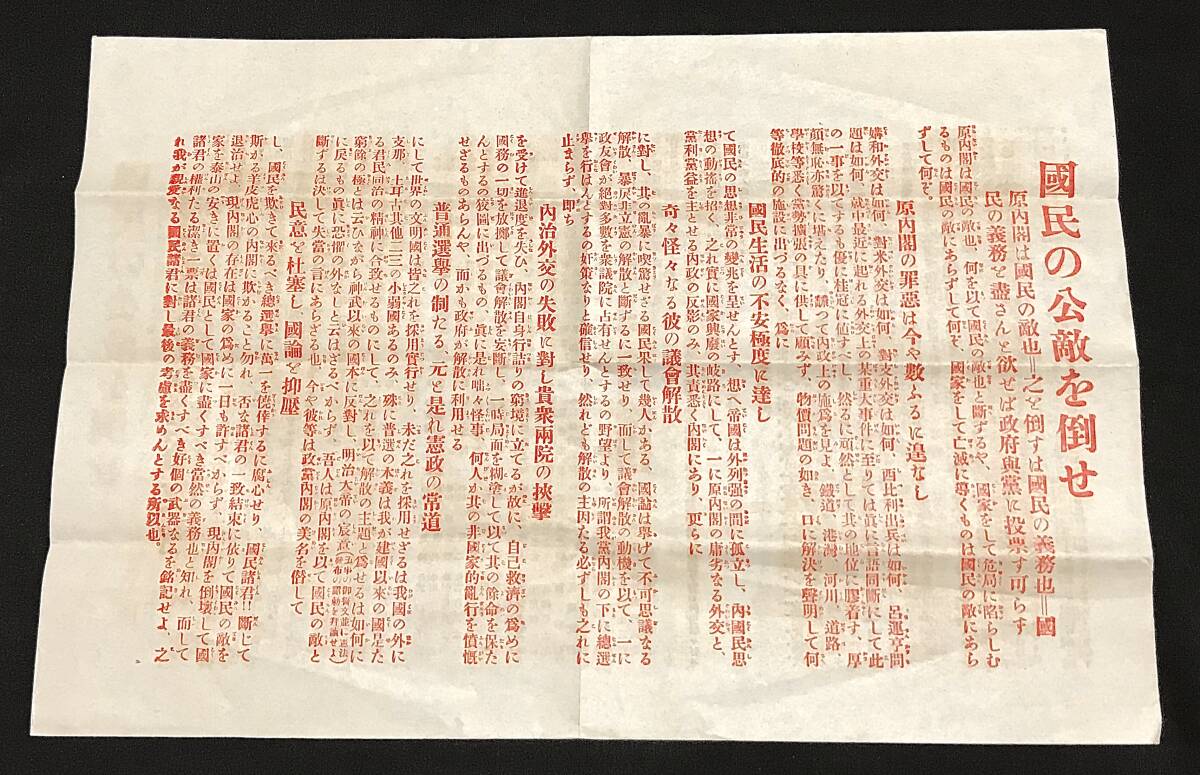 國民の公敵を倒せ
原内閣は國民の敵也＝之を倒すは國民の義務也＝國
民の義務を盡さんと欲せば政府與黨に投票す可らす
原内閣は國民の敵也、何を以て國民の敵也と斷ずるや、國家をして危局に陷らしむ
るものは國民の敵にあらずして何ぞ、國家をして亡滅に導くものは國民の敵にあら
ずして何ぞ。
原内閣の罪惡は今や數ふるに遑なし
媾和外交は如何、對米外交は如何、對支外交は如何、西比利出兵は如何、呂運亨問
題は如何、就中最近に起れる外交上の某重大事件に至りては眞に言語同斷にして此
の一事を以てするも優に桂冠に値すべし、然るに頑然として其の地位に膠着す、厚
顔無恥亦驚くに堪えたり、飜つて内政上の施爲を見よ、鐵道、港灣、河川、道路、
學校等悉く黨勢擴張の具に供して顧みず、物價問題の如き、口に解決を聲明して何
等徹底的の施設に出づるなく、爲に
國民生活の不安極度に達し
て國民の思想非常の變兆を呈せんとす、想へ帝國は外列强の間に孤立し、内國民思
想の動搖を招く、之れ實に國家興廢の岐路にして、一に原内閣の庸劣なる外交と、
黨利黨益を主とせる内政の反影のみ、其責悉く内閣にあり、更らに
奇々怪々なる彼の議會解散
に對し、其の亂暴に喫驚せざる國民果して幾人かある、國論は擧げて不可思議なる
解散、暴戻非立憲の解散と斷ずるに一致せり、而して議會解散の動機を以て、一に
政友會が絶對多數を衆議院に占有せんとするの野望より、所謂我黨内閣の下に總選
擧を行はんとするの奸策なりと確信せり、然れども解散の主因たる必ずしも之れに
止まらず、即ち
内治外交の失敗に對し貴衆兩院の挾擊
を受けて進退度を失ひ、内閣自身行詰りの窮境に立てるが故に、自己救濟の爲めに
國務の一切を放擲して議會解散を妄斷し、一時局面を糊塗して以て其の餘命を保た
んとするの狡圖に出づるもの、眞に是れ咄々怪事、何人か其の非國家的亂行を憤慨
せざるものあらんや、而かも政府が解散に利用せる
普通選擧の制たる、元と是れ憲政の常道
にして世界の文明國は皆之れを採用實行せり、未だ之れを採用せざるは我國の外に
支那、土耳古其他二三の小弱國あるのみ、殊に普選の本義は我が建國以來の國是た
る君民同治の精神に合致せるものにして、之れを以て解散の主題と爲せるは如何に
窮餘の極とは云ひながら神武以來の國本に反對し、明治大帝の宸
に戻るもの、眞に恐懼の外なしと云はざるべからず、吾人は原内閣を以て國民の敵と
斷ずるは決して失當の言にあらざる也、今や彼等は政黨内閣の美名を借して
民意を杜塞し、國論を抑壓
し、國民を欺きて來るべき總選擧に萬一を僥倖するに腐心せり、國民諸君!!斷じて
斯かる羊皮虎心の内閣に欺かるゝこと勿れ、否な諸君の一致結束に依りて國民の敵を
退治せよ、現内閣の存在は國家の爲めに一日も許すべからず、現内閣を倒壞して國
家を泰山の安きに置くは國民として國家に盡くすべき當然の義務也と知れ、而して
諸君の權利たる潔き一票は諸君の義務を盡くすべき好個の武器なるを銘記せよ、之
れ我が親愛なる國民諸君に對し最後の考慮を求めんとする所以也。